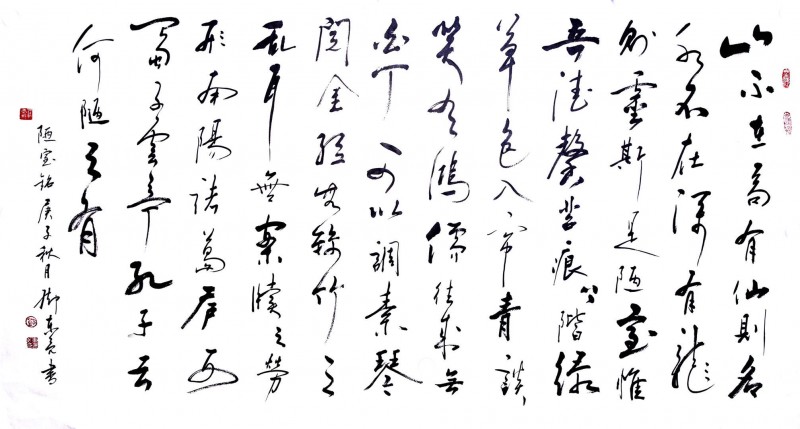 山不在高有仙則名
水不在深有龍
則靈斯是陋室惟
吾德馨苔痕上階綠
草色入帘青談
笑有鴻儒往來無
白丁可以調素琴
閱金經無絲竹之
亂耳無案牘之勞
形南陽諸葛廬西
蜀子雲亭孔子云
何陋之有
陋室銘庚子秋月東亮書